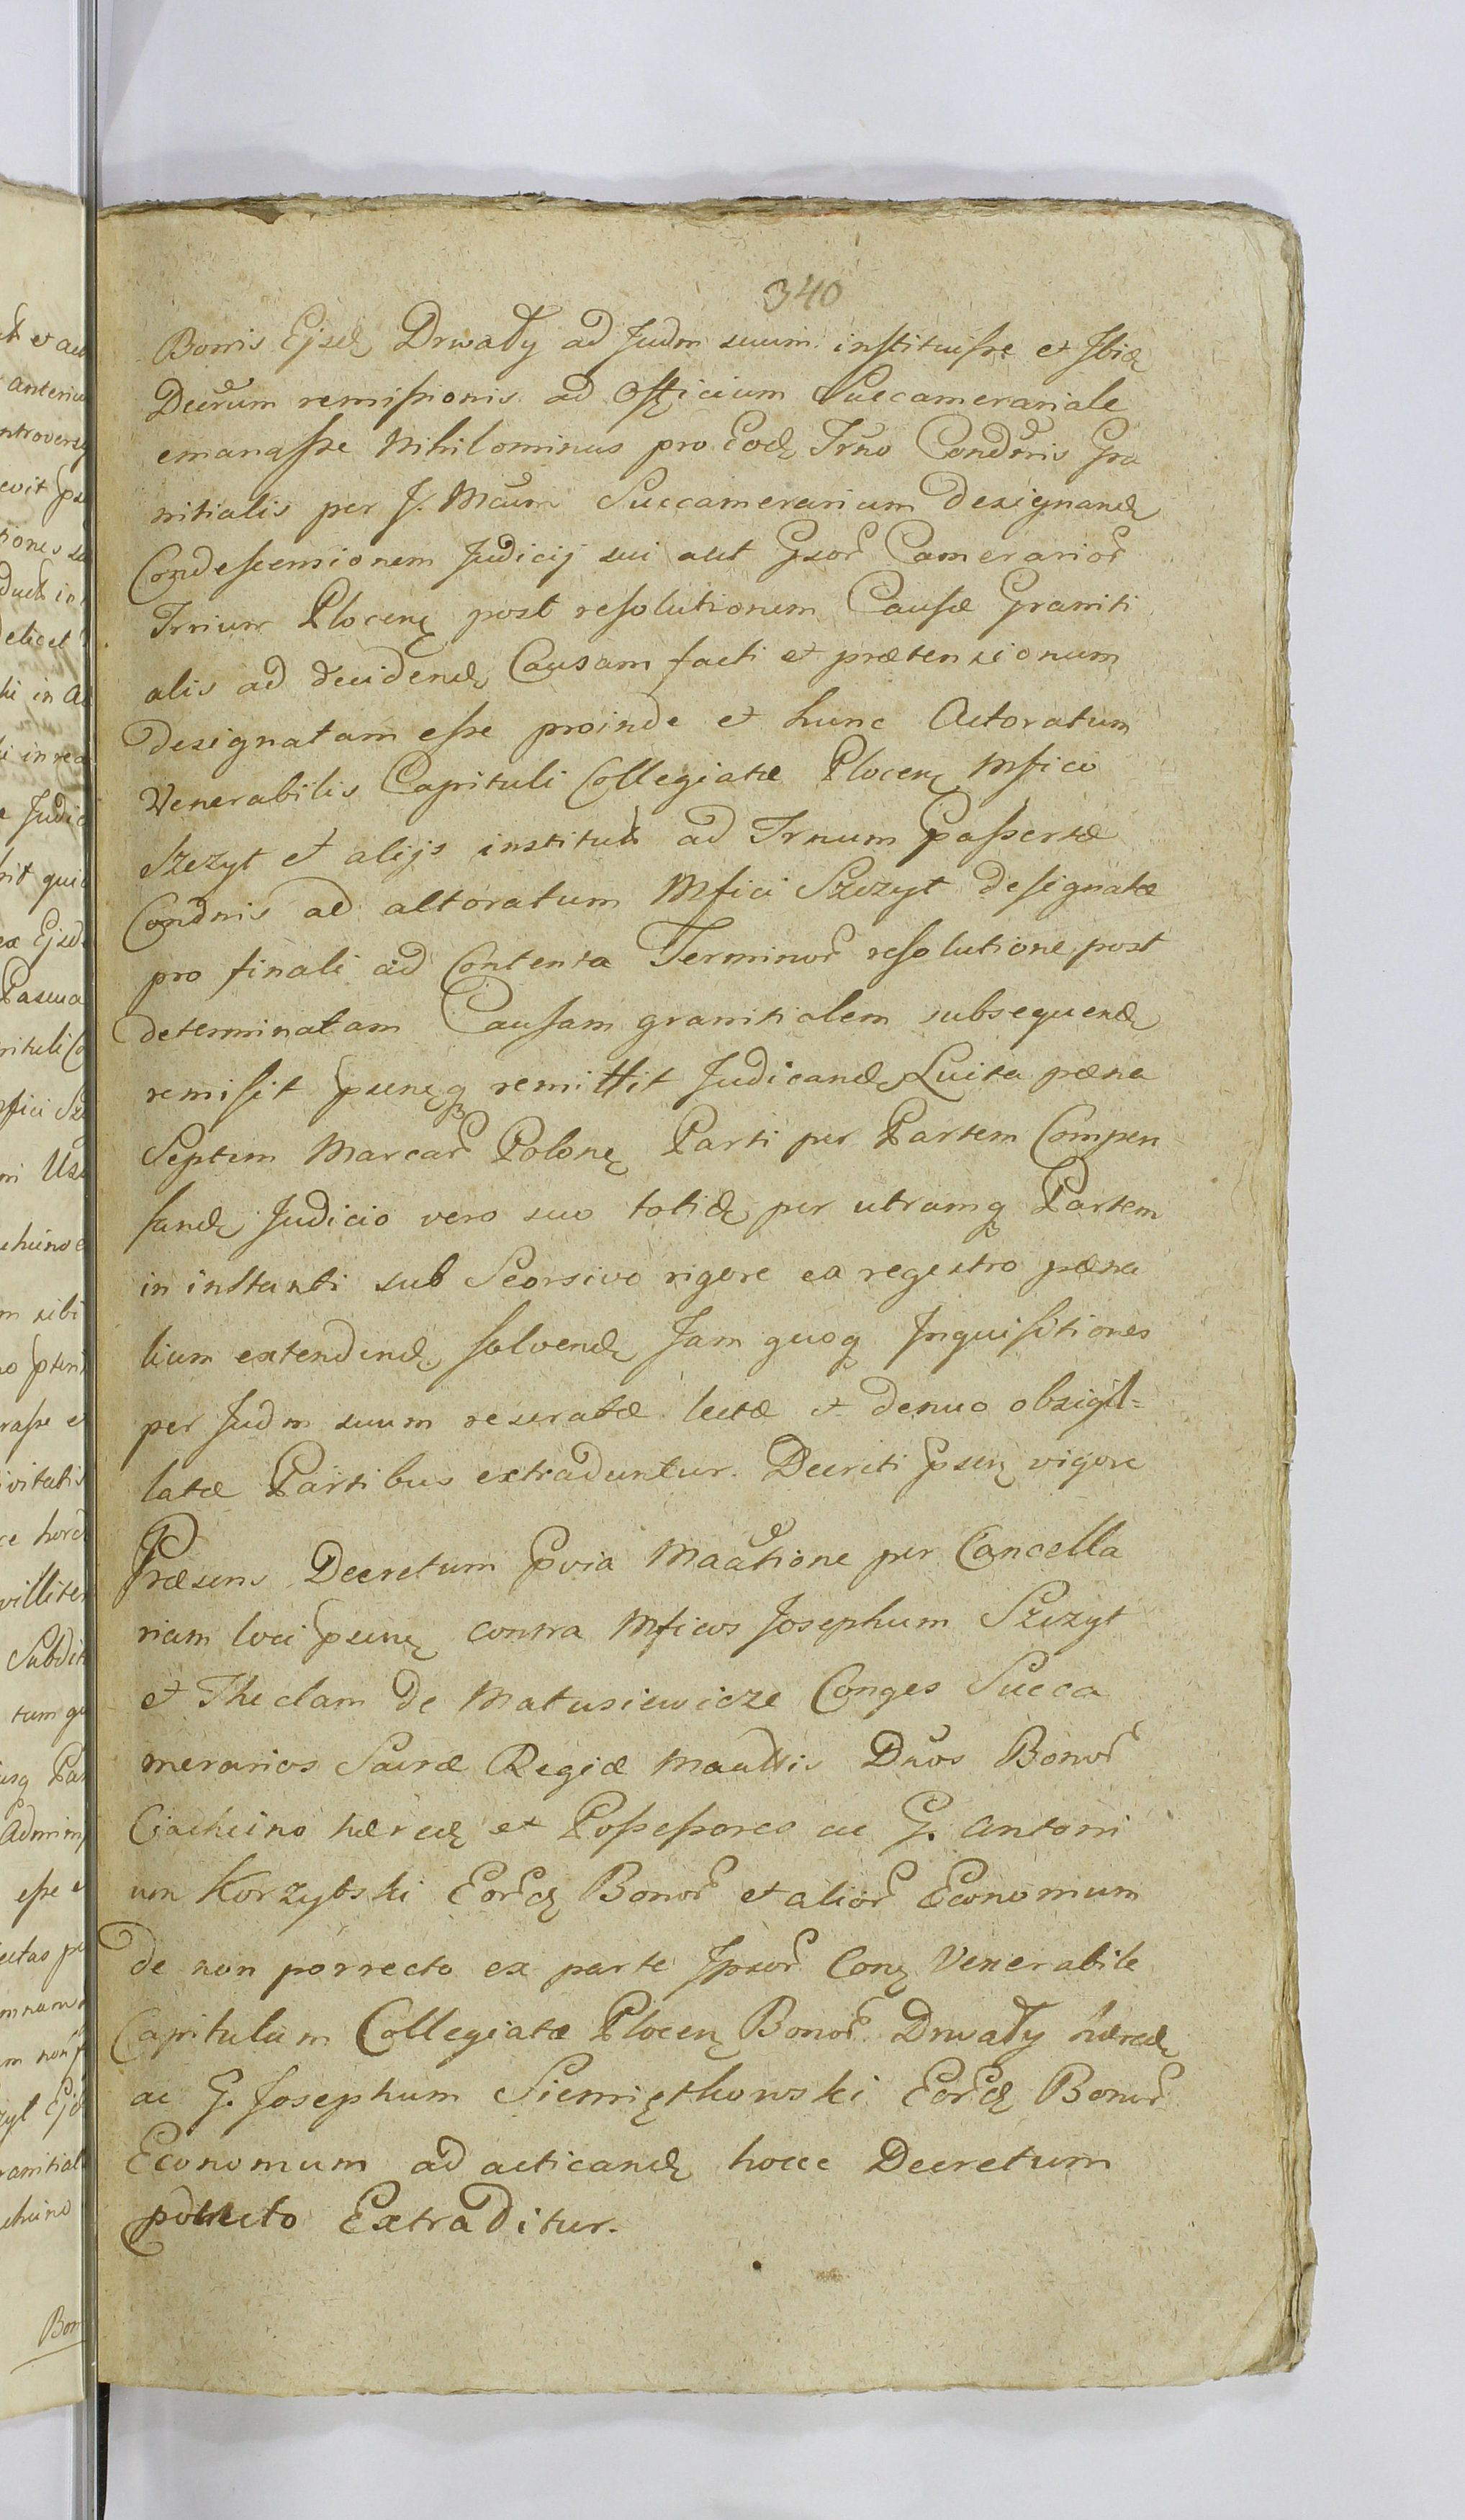 340
Bonis Ejsd Drwały ad Judm suum instituisse et Ibid
Decrum remissionis ad Officium Succamerariale
emanasse Nihilominus pro Eod Trno Condnis Gra
nitialis per J. Mcum Succamerarium Designand
Condescensionem Judicij sui aut Gsor Camerarior
Trrium Plocen post resolutionem Causæ Graniti
alis ad decidend Causam facti et prætensionum
Designatam esse proinde et hunc Actoratum
Venerabilis Capituli Collegiatæ Plocen Mfico
Szczyt et alijs institut ad Trnum passertæ
Condnis ad actoratum Mfici Szczyt designatæ
pro finali ad Contenta Terminor resolutione post
determinatam Causam granitialem subsequend
remisit psensq remittit Judicand Luita pæna
Septem Marcar Polon Parti per Partem Compen
sand Judicio vero suo totid per utramq Partem
in instanti sub Seorsivo rigore ex regestro pæna
lium extendend solvend Jam quoq Inquisitiones
per Judm suum reseratæ lectæ et denuo obsigil=
latæ Partibus extraduntur. Decreti psen vigore
Præsens Decretum pvia Maatione per Cancella
riam loci psen contra Mficos Josephum Szczyt
et Theclam de Matusiewicze Conges Succa
merarios Sacræ Regiæ Maattis Dnos Bonor
Ciachcino hæred et Possessores ac G. Antoni
um Korzybski Eord Bonor et alior Economum
de non porrecto ex parte Ipsor Con Venerabile
Capitulum Collegiatæ Plocen Bonor Drwały hæred
ac G. Josephum Siemiętkowski Eord Bonor
Economum ad acticand hocce Decretum
porrecto Extraditur.